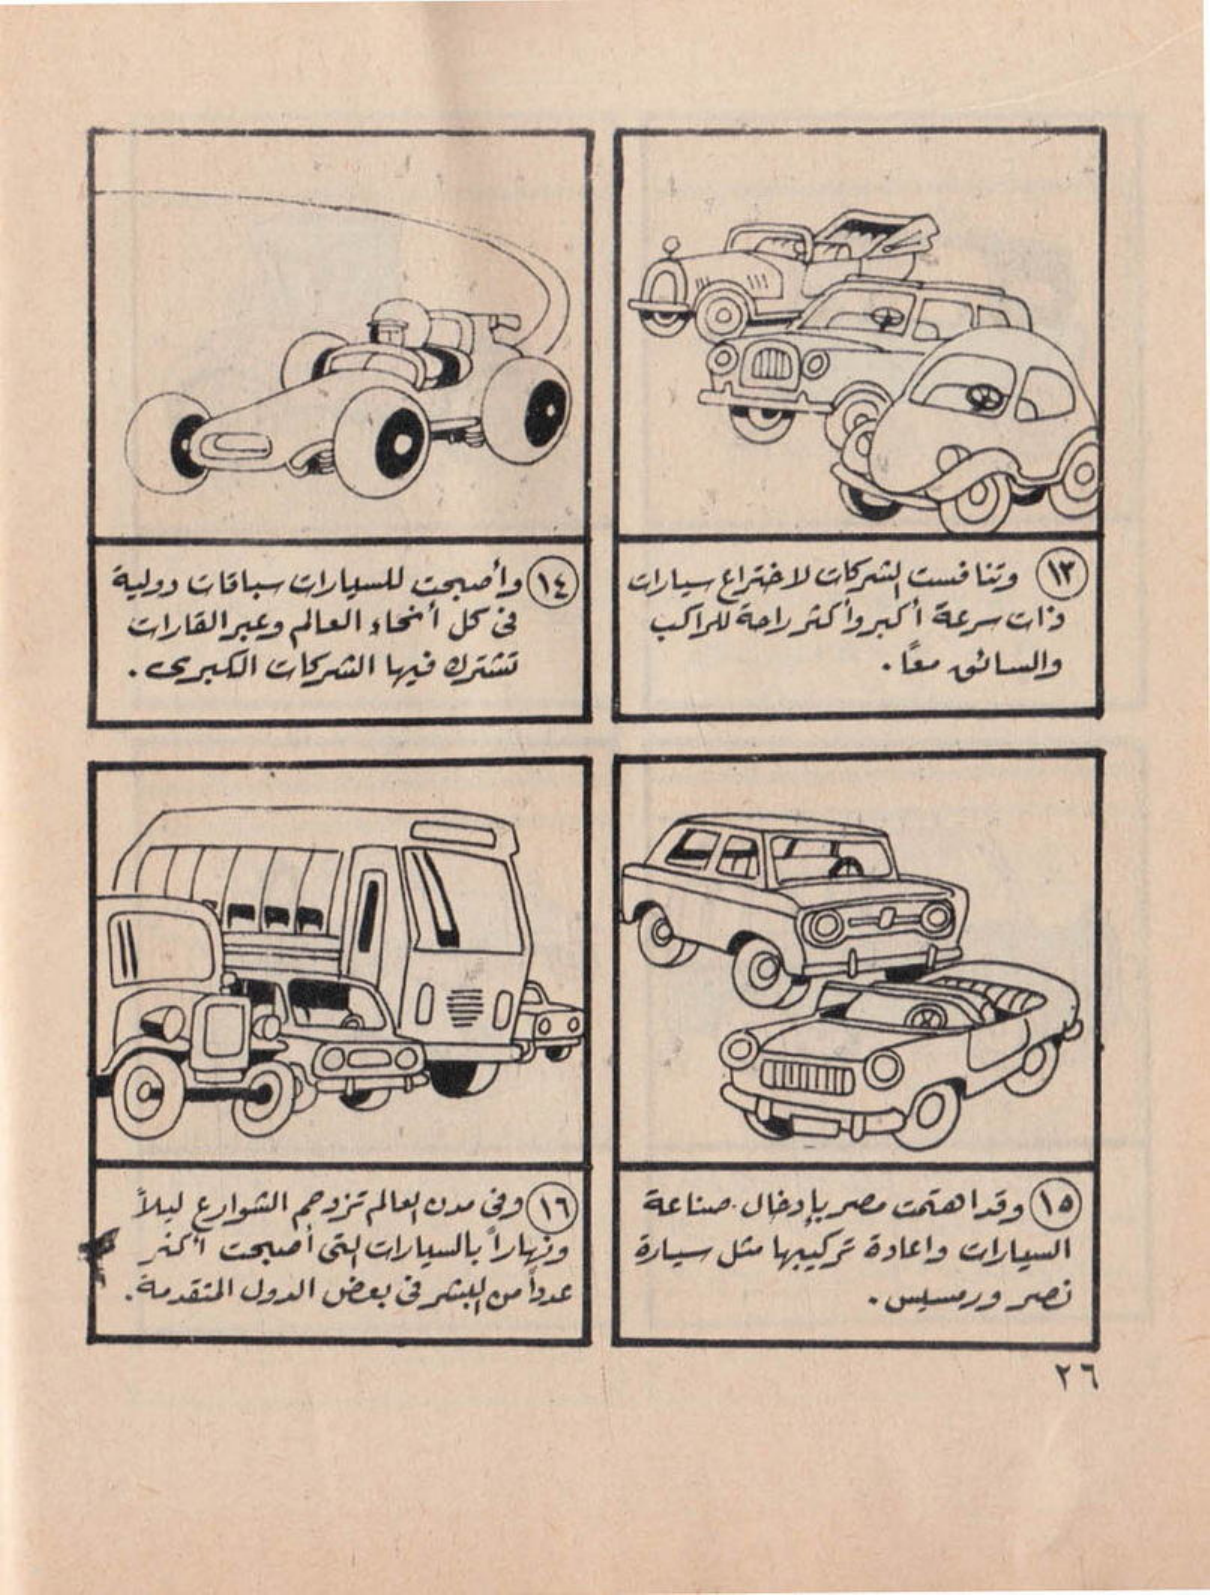 ١٣ وتنافست الشركات لاختراع سيارات
ذات سرعة أكبر وأكثر راحة للراكب
والسائق معًا .
١٤ وأصبحت للسيارات سباقات دولية
فى كل أنحاء العالم وعبر القارات
تشترك فيها الشركات الكبرى .
١٥ وقد اهتمت مصر بإدخال صناعة
السيارات واعادة تركيبها مثل سيارة
نصر ورمسيس .
١٦ وفى مدن العالم تزدحم الشوارع ليلاً
ونهاراً بالسيارات التى أصبحت أكثر
عدداً من البشر فى بعض الدول المتقدمة .
٢٦